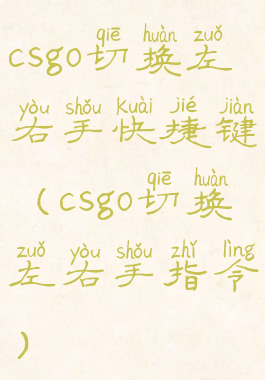 qiē huàn zuǒ
csgo切换左
yòu shǒu Kuài jié jiàn
右手快捷键
qiē huàn
(csgo切换
zuǒ yòu shǒu zhǐ lìng
左右手指令
)